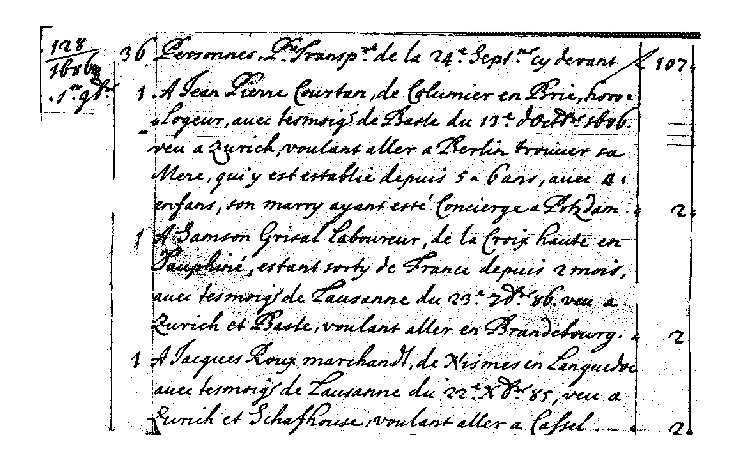 128
1686
1.er 9bre
36 Personnes, Pr Transpt de la 24.e Septre cy devant 107
1 A Jean Pierre Courtan, de Columier en Brie, horo-
logeur, avec tesmoig de Basle du 13.e d'Octbr 1686
veu a Zurich, voulant aller a Berlin trouver sa
Mere, qui y est establie depuis 5 a 6 ans, avec 4
enfans, son marry ayant esté Concierge a Potzdam. 2
1 A Samson Grisal laboureur, de la Croix haute en
Dauphiné, estant sorty de France depuis 2 mois,
avec tesmoig de Lausanne du 23.e 7br 86. veu a
Zurich et Basle, voulant aller en Brandebourg. 2
1 A Jacques Roux marchandt, de Nismes en Languedoc
avec tesmoig de Lausanne du 22.e Xbr 85, veu a
Zurich et Schafhouse, voulant aller a Cassel 2